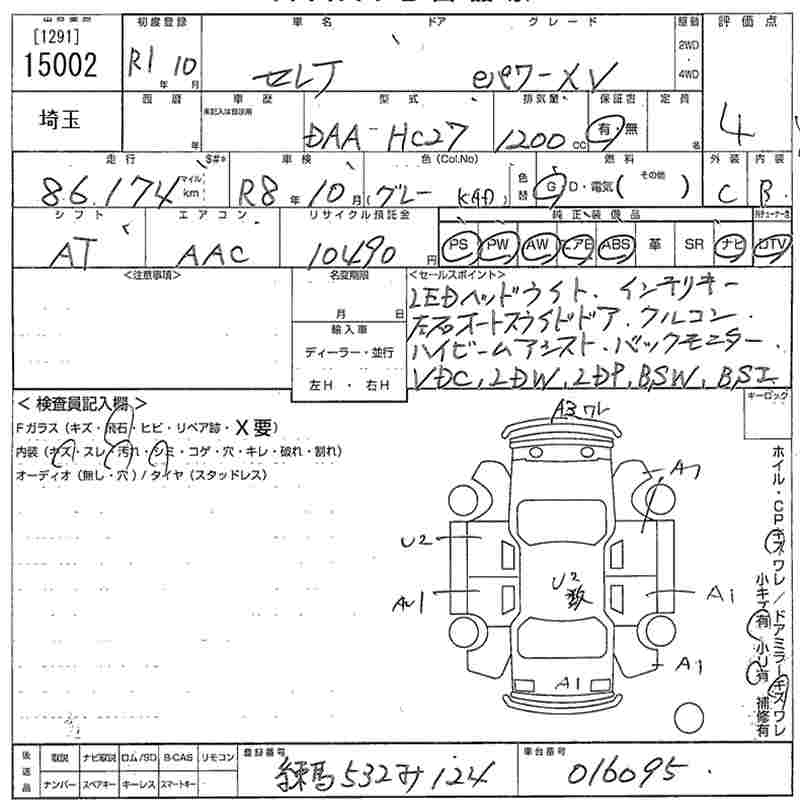 [1291]
15002
埼玉
初度登録
R1 年 10 月
車名 ドア グレード
セレナ eパワーXV
駆動
2WD
4WD
評価点
4
西暦 年
車歴
型式
DAA-HC27
排気量
1200 CC
保証書
有・無
定員
名
走行
86,174 マイル km
S#*
車検
R8 年 10 月
色(Col.No)
(グレー KAD)
色替
燃料
G・D・電気( その他 )
外装
C
内装
B
シフト
AT
エアコン
AAC
リサイクル預託金
10490 円
純正装備品
PS PW AW エアB ABS 革 SR ナビ DTV
<注意事項>
名変期限
月 日
輸入車
ディーラー・並行
左H ・ 右H
<セールスポイント>
LEDヘッドライト. インテリキー
左右オートスライドドア. クルコン.
ハイビームアシスト. バックモニター
VDC, LDW, LDP, BSW, BSI
キーロック
<検査員記入欄>
Fガラス(キズ・飛石・ヒビ・リペア跡・X要)
内装(キズ・スレ・汚れ・シミ・コゲ・穴・キレ・破れ・割れ)
オーディオ(無し・穴)/タイヤ(スタッドレス)
A3ワレ
U2
U2 数
A1
A1
A1
ホイル・CPキズワレ/ドアミラーキズワレ
小キズ有 小U有 補修有
後送品
取説 ナビ取説 ロム/SD B-CAS リモコン
ナンバー スペアキー キーレス スマートキー
登録番号
練馬 532 み 124
車台番号
016095